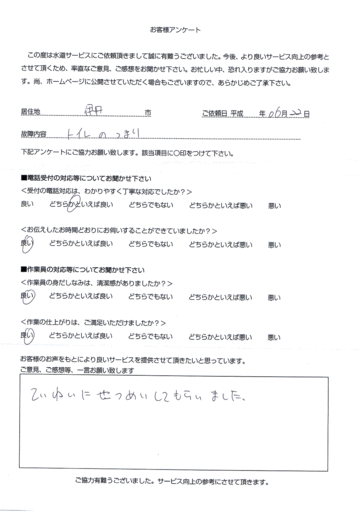 お客様アンケート
この度は水道サービスにご依頼頂きまして誠に有難うございました。今後、より良いサービス向上の参考と
させて頂くため、率直なご意見、ご感想をお聞かせ下さい。お忙しい中、恐れ入りますがご協力お願い致しま
す。尚、ホームページに公開させていただく場合もございますので、あらかじめご了承下さい。
居住地 伊丹 市 ご依頼日 平成 年 06月 22日
故障内容 トイレのつまり
下記アンケートにご協力お願い致します。該当項目に〇印をつけて下さい。
■電話受付の対応等についてお聞かせ下さい
<受付の電話対応は、わかりやすく丁寧な対応でしたか？>
良い どちらかといえば良い どちらでもない どちらかといえば悪い 悪い
<お伝えしたお時間どおりにお伺いすることができていましたか？>
良い どちらかといえば良い どちらでもない どちらかといえば悪い 悪い
■作業員の対応等についてお聞かせ下さい
<作業員の身だしなみは、清潔感がありましたか？>
良い どちらかといえば良い どちらでもない どちらかといえば悪い 悪い
<作業の仕上がりは、ご満足いただけましたか？>
良い どちらかといえば良い どちらでもない どちらかといえば悪い 悪い
お客様のお声をもとにより良いサービスを提供させて頂きたいと思っています。
ご意見、ご感想等、一言お願い致します
ていねいにせつめいしてもらいました。
ご協力有難うございました。サービス向上の参考にさせて頂きます。